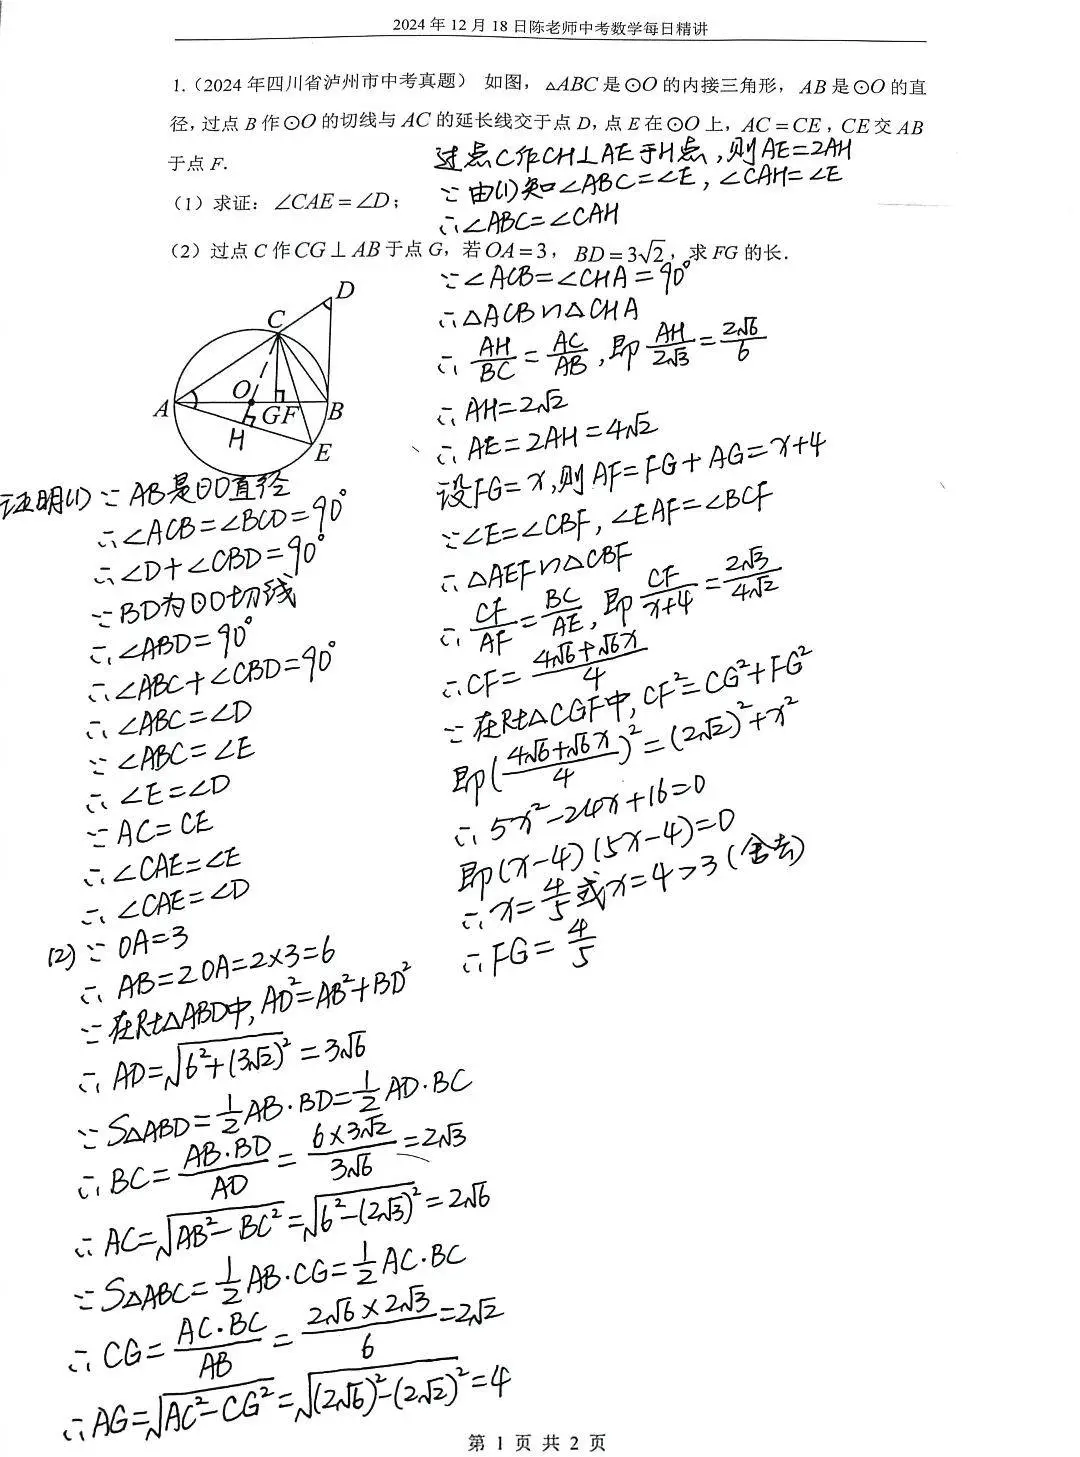 2024年12月18日陈老师中考数学每日精讲
1.（2024年四川省泸州市中考真题） 如图，△ABC是⊙O的内接三角形，AB是⊙O的直
径，过点B作⊙O的切线与AC的延长线交于点D，点E在⊙O上，AC=CE，CE交AB
于点F．
（1）求证：∠CAE=∠D；
（2）过点C作CG⊥AB于点G，若OA=3，BD=3√2，求FG的长．
D
C
A
O
G F
B
H
E
证明(1) ∵ AB是⊙O直径
∴∠ACB=∠BCD=90°
∴∠D+∠CBD=90°
∵BD为⊙O切线
∴∠ABD=90°
∴∠ABC+∠CBD=90°
∴∠ABC=∠D
∵∠ABC=∠E
∴∠E=∠D
∵AC=CE
∴∠CAE=∠E
∴∠CAE=∠D
(2)∵OA=3
∴AB=2OA=2×3=6
∵在Rt△ABD中,AD²=AB²+BD²
∴AD=√(6²+(3√2)²)=3√6
∵S△ABD=1/2AB·BD=1/2AD·BC
∴BC=AB·BD/AD=6×3√2/3√6=2√3
∴AC=√(AB²-BC²)=√(6²-(2√3)²)=2√6
∵S△ABC=1/2AB·CG=1/2AC·BC
∴CG=AC·BC/AB=2√6×2√3/6=2√2
∴AG=√(AC²-CG²)=√((2√6)²-(2√2)²)=4
过点C作CH⊥AE于H点,则AE=2AH
∵由(1)知∠ABC=∠E,∠CAH=∠E
∴∠ABC=∠CAH
∵∠ACB=∠CHA=90°
∴△ACB∽△CHA
∴AH/BC=AC/AB,即AH/2√3=2√6/6
∴AH=2√2
∴AE=2AH=4√2
设FG=x,则AF=FG+AG=x+4
∵∠E=∠CBF,∠EAF=∠BCF
∴△AEF∽△CBF
∴CF/AF=BC/AE,即CF/x+4=2√3/4√2
∴CF=4√6+√6x/4
∵在Rt△CGF中,CF²=CG²+FG²
即(4√6+√6x/4)²=(2√2)²+x²
∴5x²-24x+16=0
即(x-4)(5x-4)=0
∴x=4/5或x=4>3(舍去)
∴FG=4/5
第 1 页 共 2 页